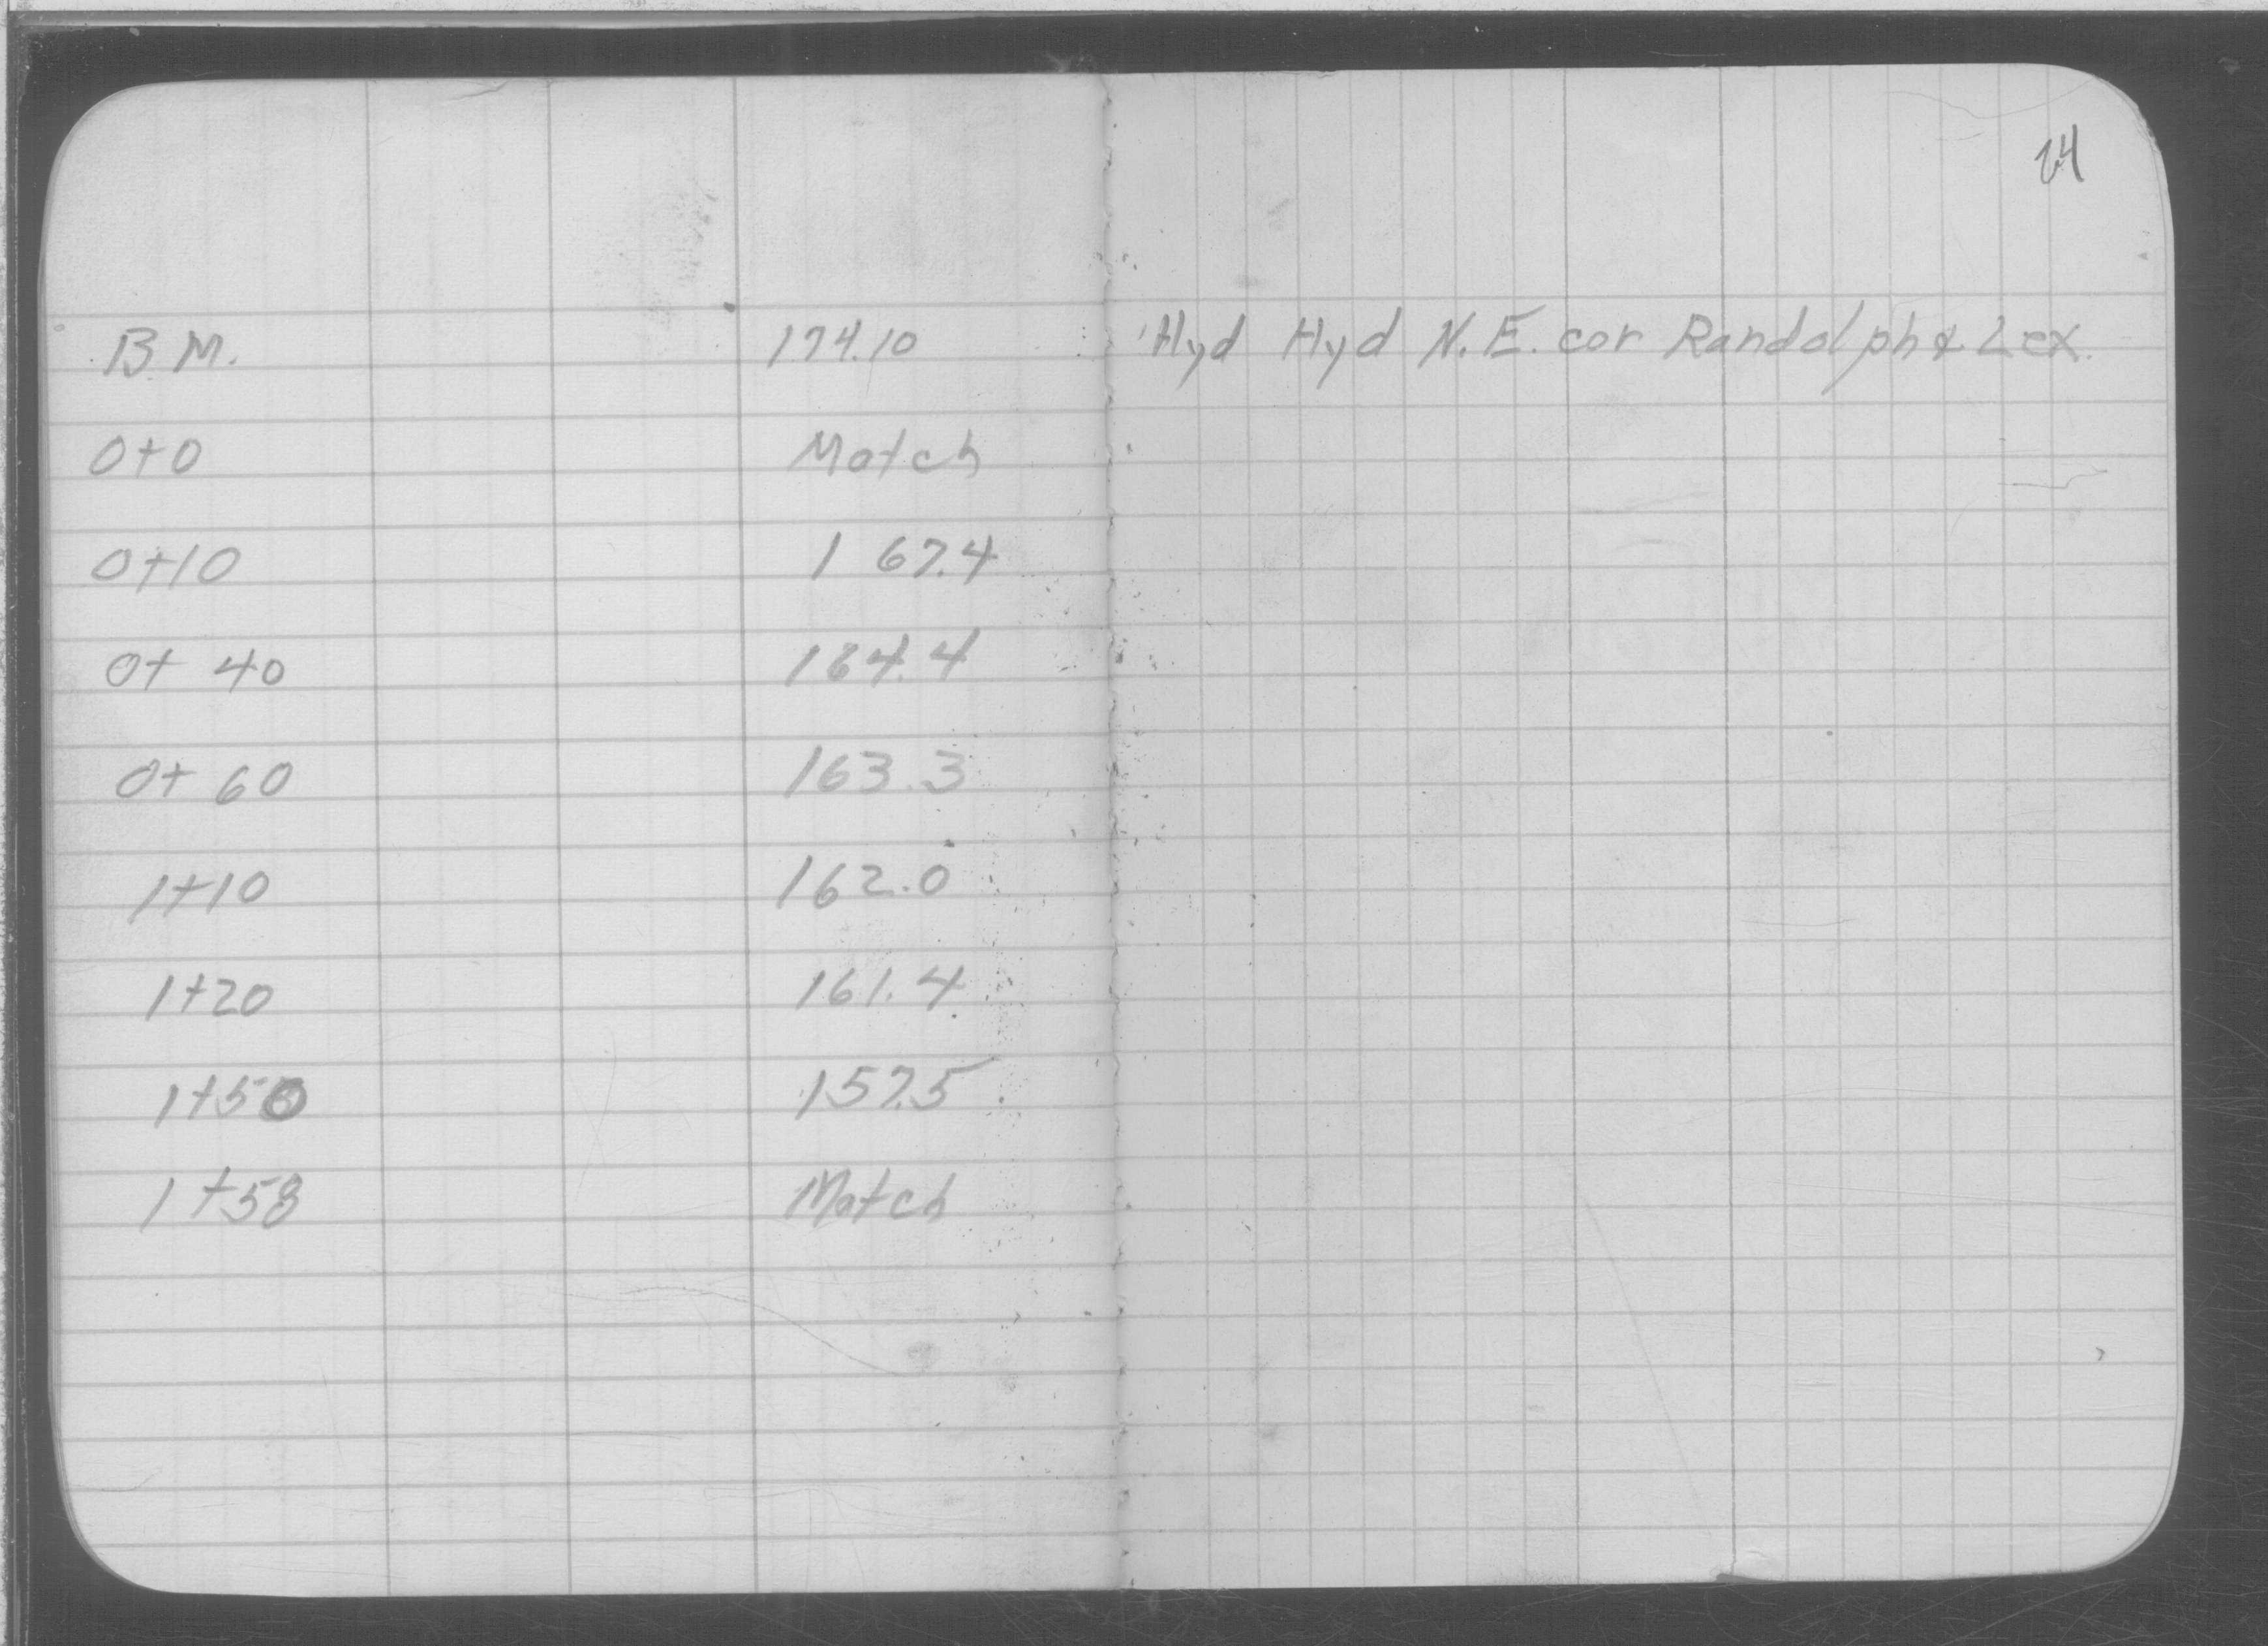 24
B M. 174.10 Hyd Hyd N.E. cor Randolph & Lex.
0+0 Match
0+10 167.4
0+40 164.4
0+60 163.3
1+10 162.0
1+20 161.4
1+50 157.5
1+58 Match